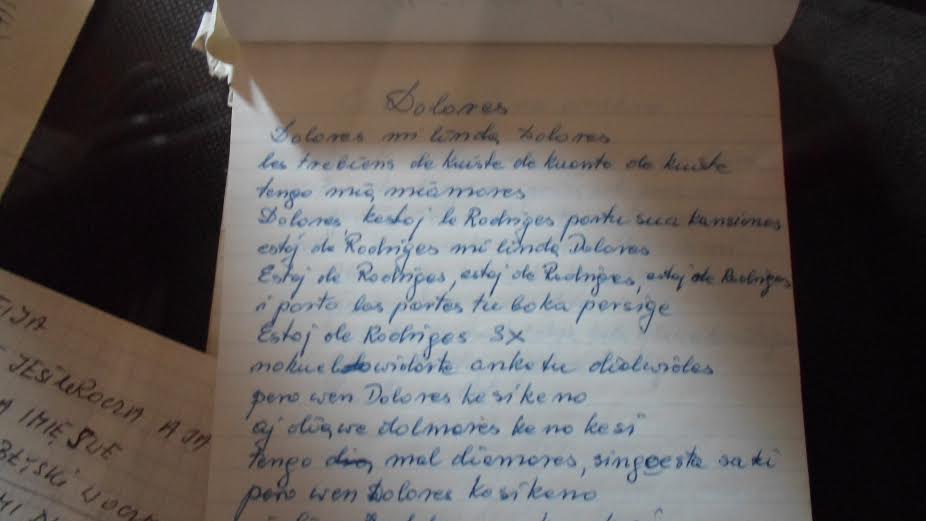 Dolores
Dolores mi lindą Dolores
les trebiens de kuiste de kuonto de kuiste
tengo mią miamores
Dolores, kestoj le Rodriges portu sua kansiones
estój de Rodriges mi lindą Dolores
Estoj de Rodriges, estoj de Rodriges, estoj de Rodriges
i porto los portes tu boka persige
Estoj de Rodriges 3x
anketu dialwides
pero wen Dolores kesikeno
aj dią we dolmores ke no kesi
tengo mal diamores, singoesta sati
pero wen Dolores kesikeno
IJA
JESIEROCZA A JA
A IMIĘ SWE